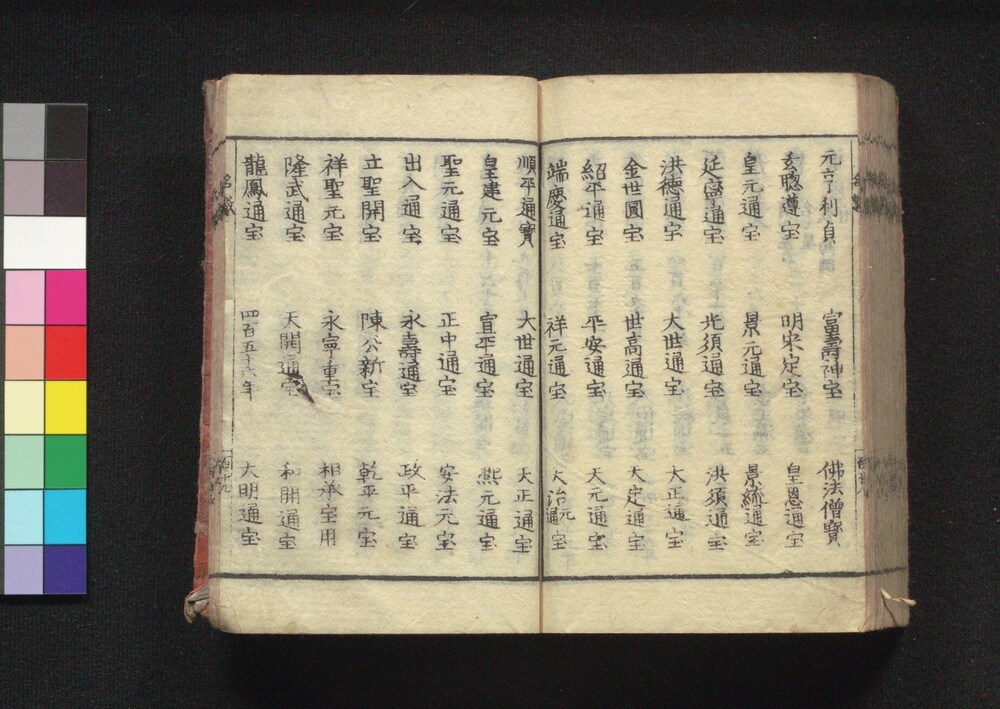 元亨利貞 富壽神宝 佛法僧寳
玄聰遵宝 明宋定宝 皇恩通宝
皇元通宝 景元通宝 景統通宝
延寧通宝 光須通宝 洪須通宝
洪徳通宇 大世通宝 大正通宝
金世圓宝 世高通宝 大定通宝
紹平通宝 平安通宝 天元通宝
端慶通宝 祥元通宝 大治元通宝
順平通寳 大世通宝 天正通宝
皇建元宝 宣平通宝 熙元通宝
聖元通宝 正中通宝 安法元宝
出入通宝 永壽通宝 政平通宝
立聖開宝 陳公新宝 乾平元宝
祥聖元宝 永寧重宝 相承宝用
隆武通宝 天開通宝 和開通宝
龍鳳通宝 四百五十六年 大明通宝